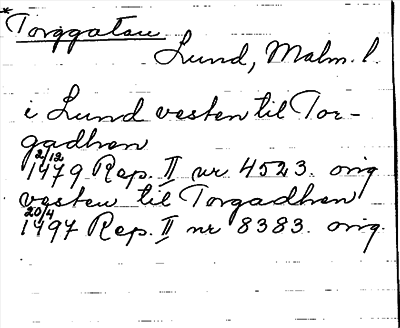 * Torggatan
Lund, Malm. l.
i Lund vesten til Tor-
gadhen
2/12
1479 Rep. II nr 4523. orig
vesten til Torgadhen
20/4
1497 Rep. II nr 8383. orig.